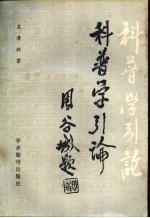 科普学引论
科普学引论
周谷城题
学术期刊出版社